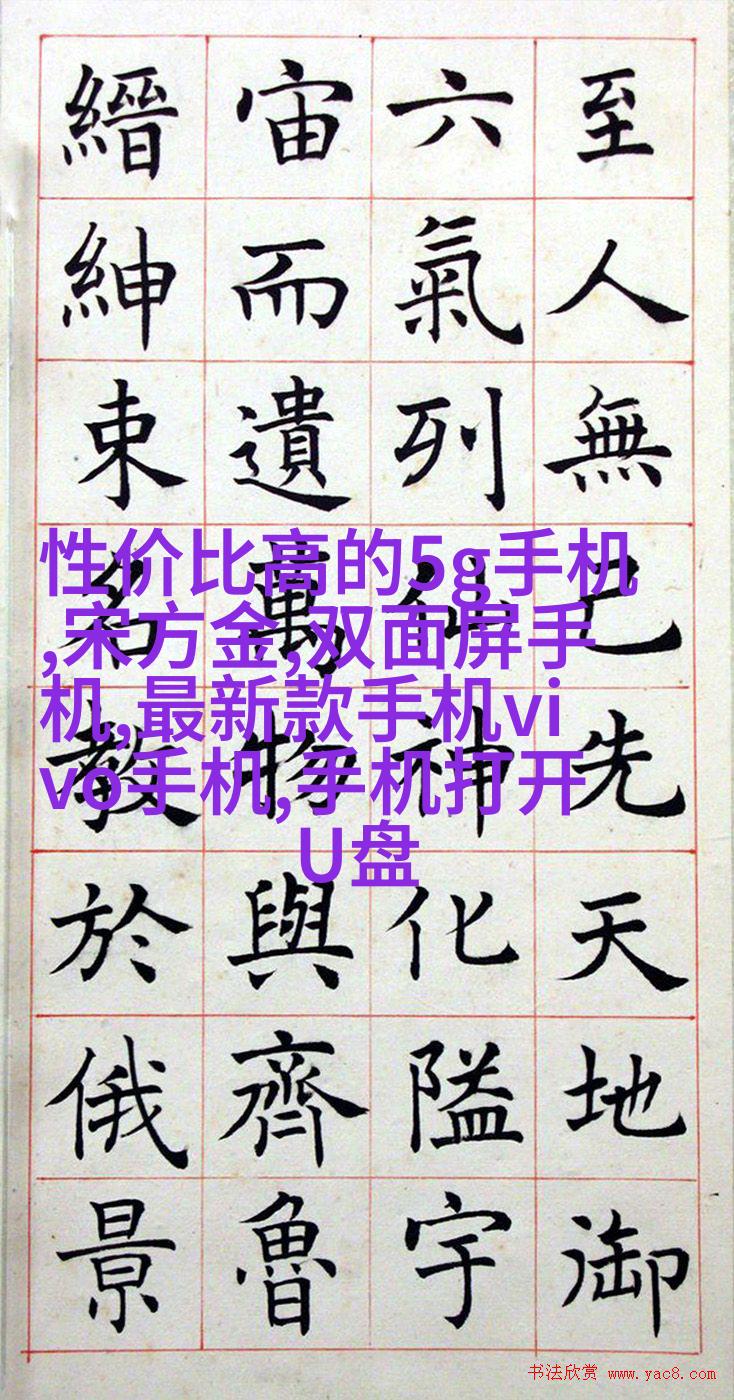 至人無己先天地御
六氣列仙神化隘宇
宙而遺萬物與齊魯
縉紳束名教於俄景
性价比高的5g手机
,宋方金,双面屏手
机,最新款手机vi
vo手机,手机打开
U盘
书法欣赏 www.yac8.com